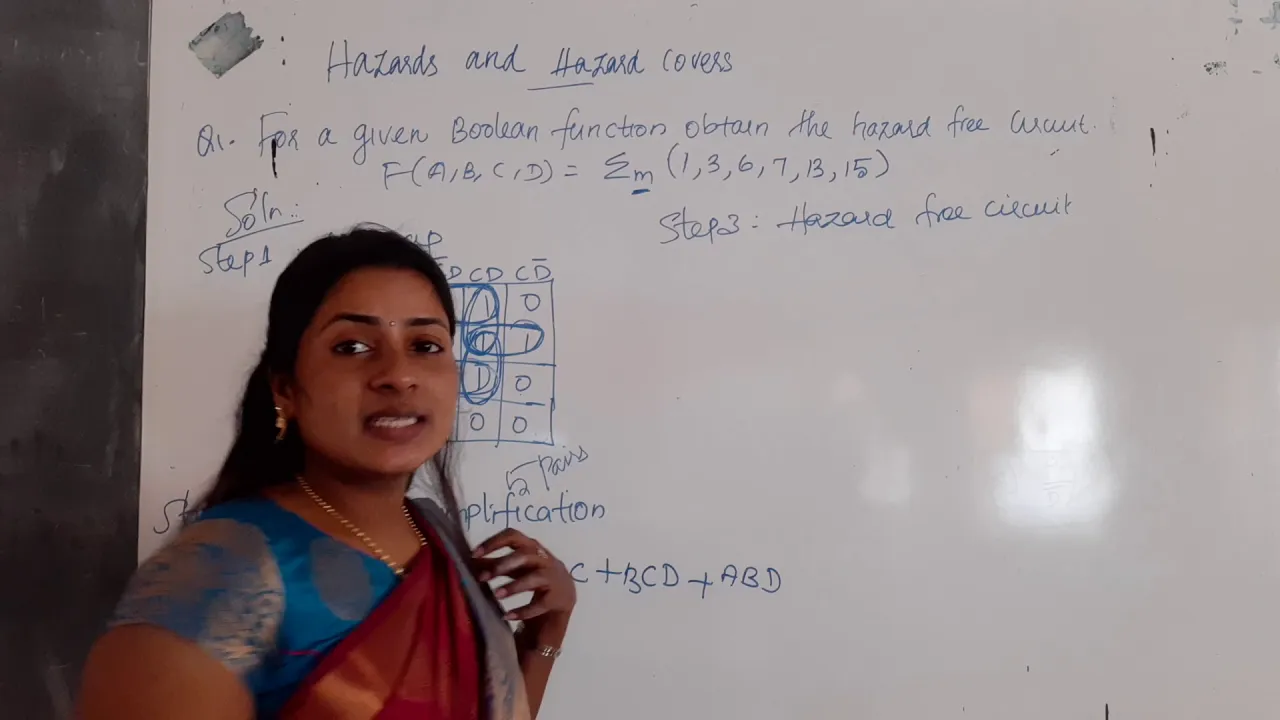 Hazards and Hazard covers
Q1. For a given Boolean function obtain the hazard free circuit.
F(A,B,C,D) = Σm (1,3,6,7,13,15)
Soln:
Step1
Step3: Hazard free circuit
CD CD̅
1 0
1
1 0
0 0
2 pairs
C + BCD + ABD